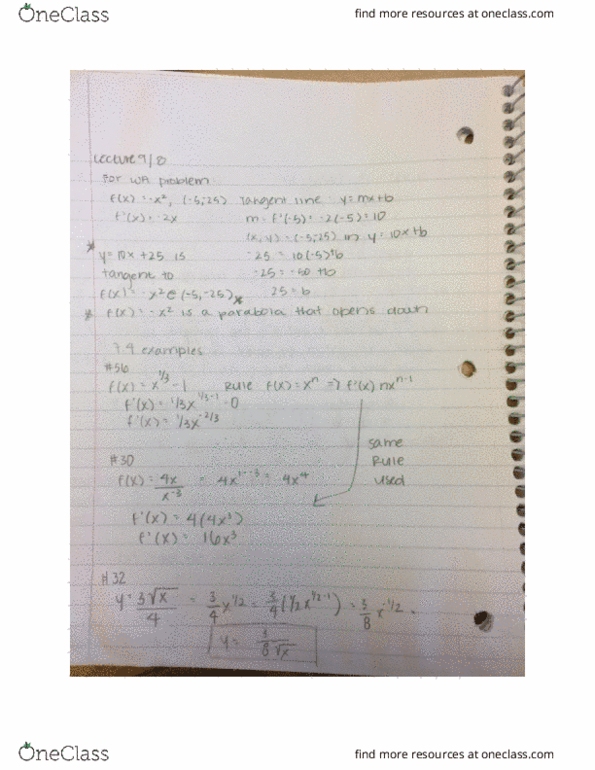 OneClass
find more resources at oneclass.com
Lecture 9/8
For WA problem
f(x) = -x², (-5,-25) Tangent line y=mx+b
f'(x) = -2x m = f'(-5) = -2(-5) = 10
(x, y) = (-5,-25) in y = 10x+b
* y = 10x + 25 is -25 = 10(-5)+b
tangent to -25 = -50 + b
f(x) = -x² @ (-5,-25) * 25 = b
* f(x) = -x² is a parabola that opens down
3.4 examples
#56
f(x) = x^(1/3) - 1 Rule f(x) = x^n => f'(x) nx^(n-1)
f'(x) = 1/3x^(1/3-1) - 0
f'(x) = 1/3x^(-2/3)
same
Rule
used
#30
f(x) = 4x/x^-3 = 4x^(1--3) = 4x⁴
f'(x) = 4(4x³)
f'(x) = 16x³
#32
y = 3√x/4 = 3/4 x^(1/2) = 3/4 (1/2x^(1/2-1)) = 3/8 x^(-1/2) =
y = 3/8√x
OneClass
find more resources at oneclass.com